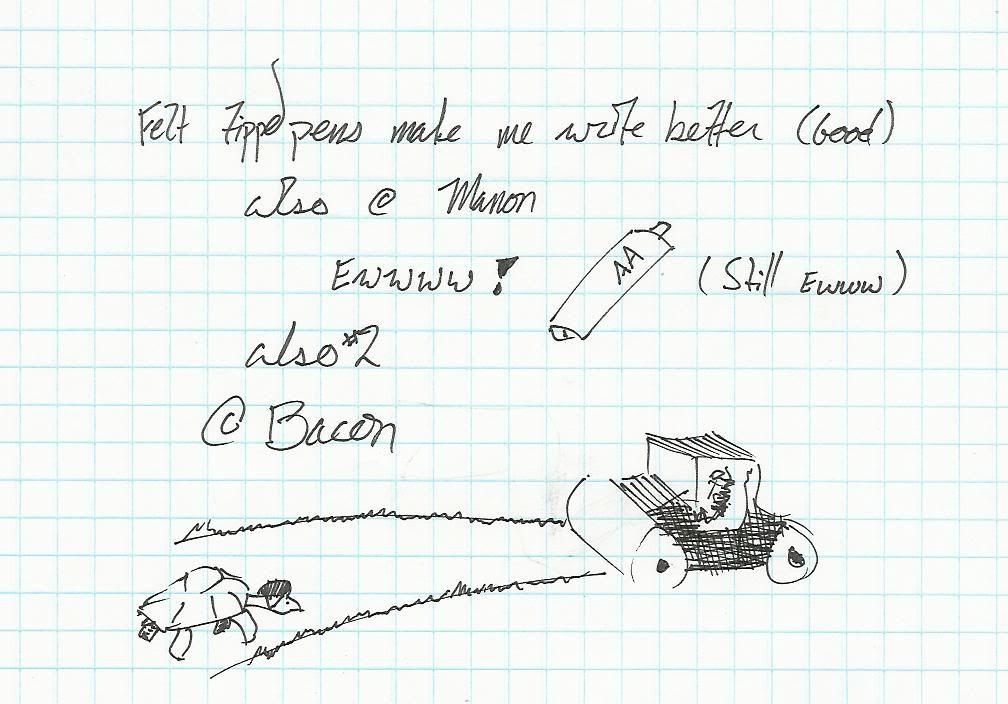 Felt tipped pens make me write better (Good)
also @ Manon
Ewwww!
AA
(Still Ewww)
also #2
@ Bacon